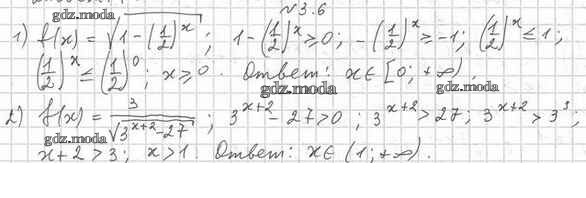 №3.6
gdz.moda
1) f(x) = √(1-(1/2)^x); 1-(1/2)^x ≥ 0; -(1/2)^x ≥ -1; (1/2)^x ≤ 1;
(1/2)^x ≤ (1/2)^0; x ≥ 0. Ответ: x ∈ [0; +∞)
gdz.moda gdz.moda
2) f(x) = 3/√(3^(x+2)-27); 3^(x+2) - 27 > 0; 3^(x+2) > 27; 3^(x+2) > 3^3;
gdz.moda gdz.moda
x+2 > 3; x > 1. Ответ: x ∈ (1; +∞).